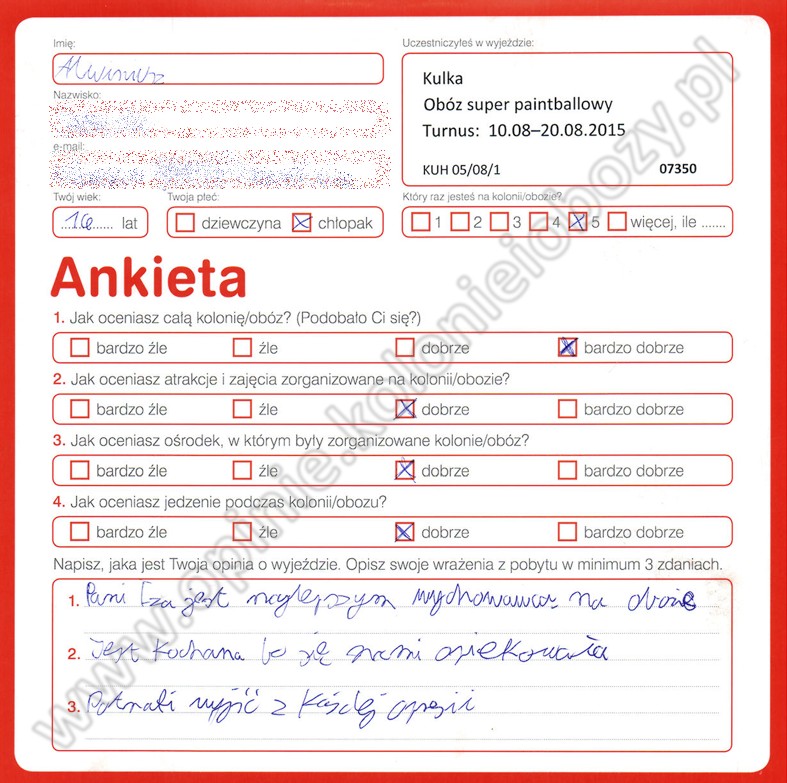 Imię:
Uczestniczyłeś w wyjeździe:
Kulka
Obóz super paintballowy
Turnus: 10.08–20.08.2015
KUH 05/08/1 07350
Nazwisko:
e-mail:
Twój wiek: Twoja płeć: Który raz jesteś na kolonii/obozie?
16 lat dziewczyna chłopak 1 2 3 4 5 więcej, ile .......
Ankieta
1. Jak oceniasz całą kolonię/obóz? (Podobało Ci się?)
bardzo źle źle dobrze bardzo dobrze
2. Jak oceniasz atrakcje i zajęcia zorganizowane na kolonii/obozie?
bardzo źle źle dobrze bardzo dobrze
3. Jak oceniasz ośrodek, w którym były zorganizowane kolonie/obóz?
bardzo źle źle dobrze bardzo dobrze
4. Jak oceniasz jedzenie podczas kolonii/obozu?
bardzo źle źle dobrze bardzo dobrze
Napisz, jaka jest Twoja opinia o wyjeździe. Opisz swoje wrażenia z pobytu w minimum 3 zdaniach.
1. Pani Iza jest najlepszym wychowawcą na obozie
2. Jest kochana bo się nami opiekowała
3. Potrafi wyjść z każdej opresji
www.opinie.kolonieiobozy.pl